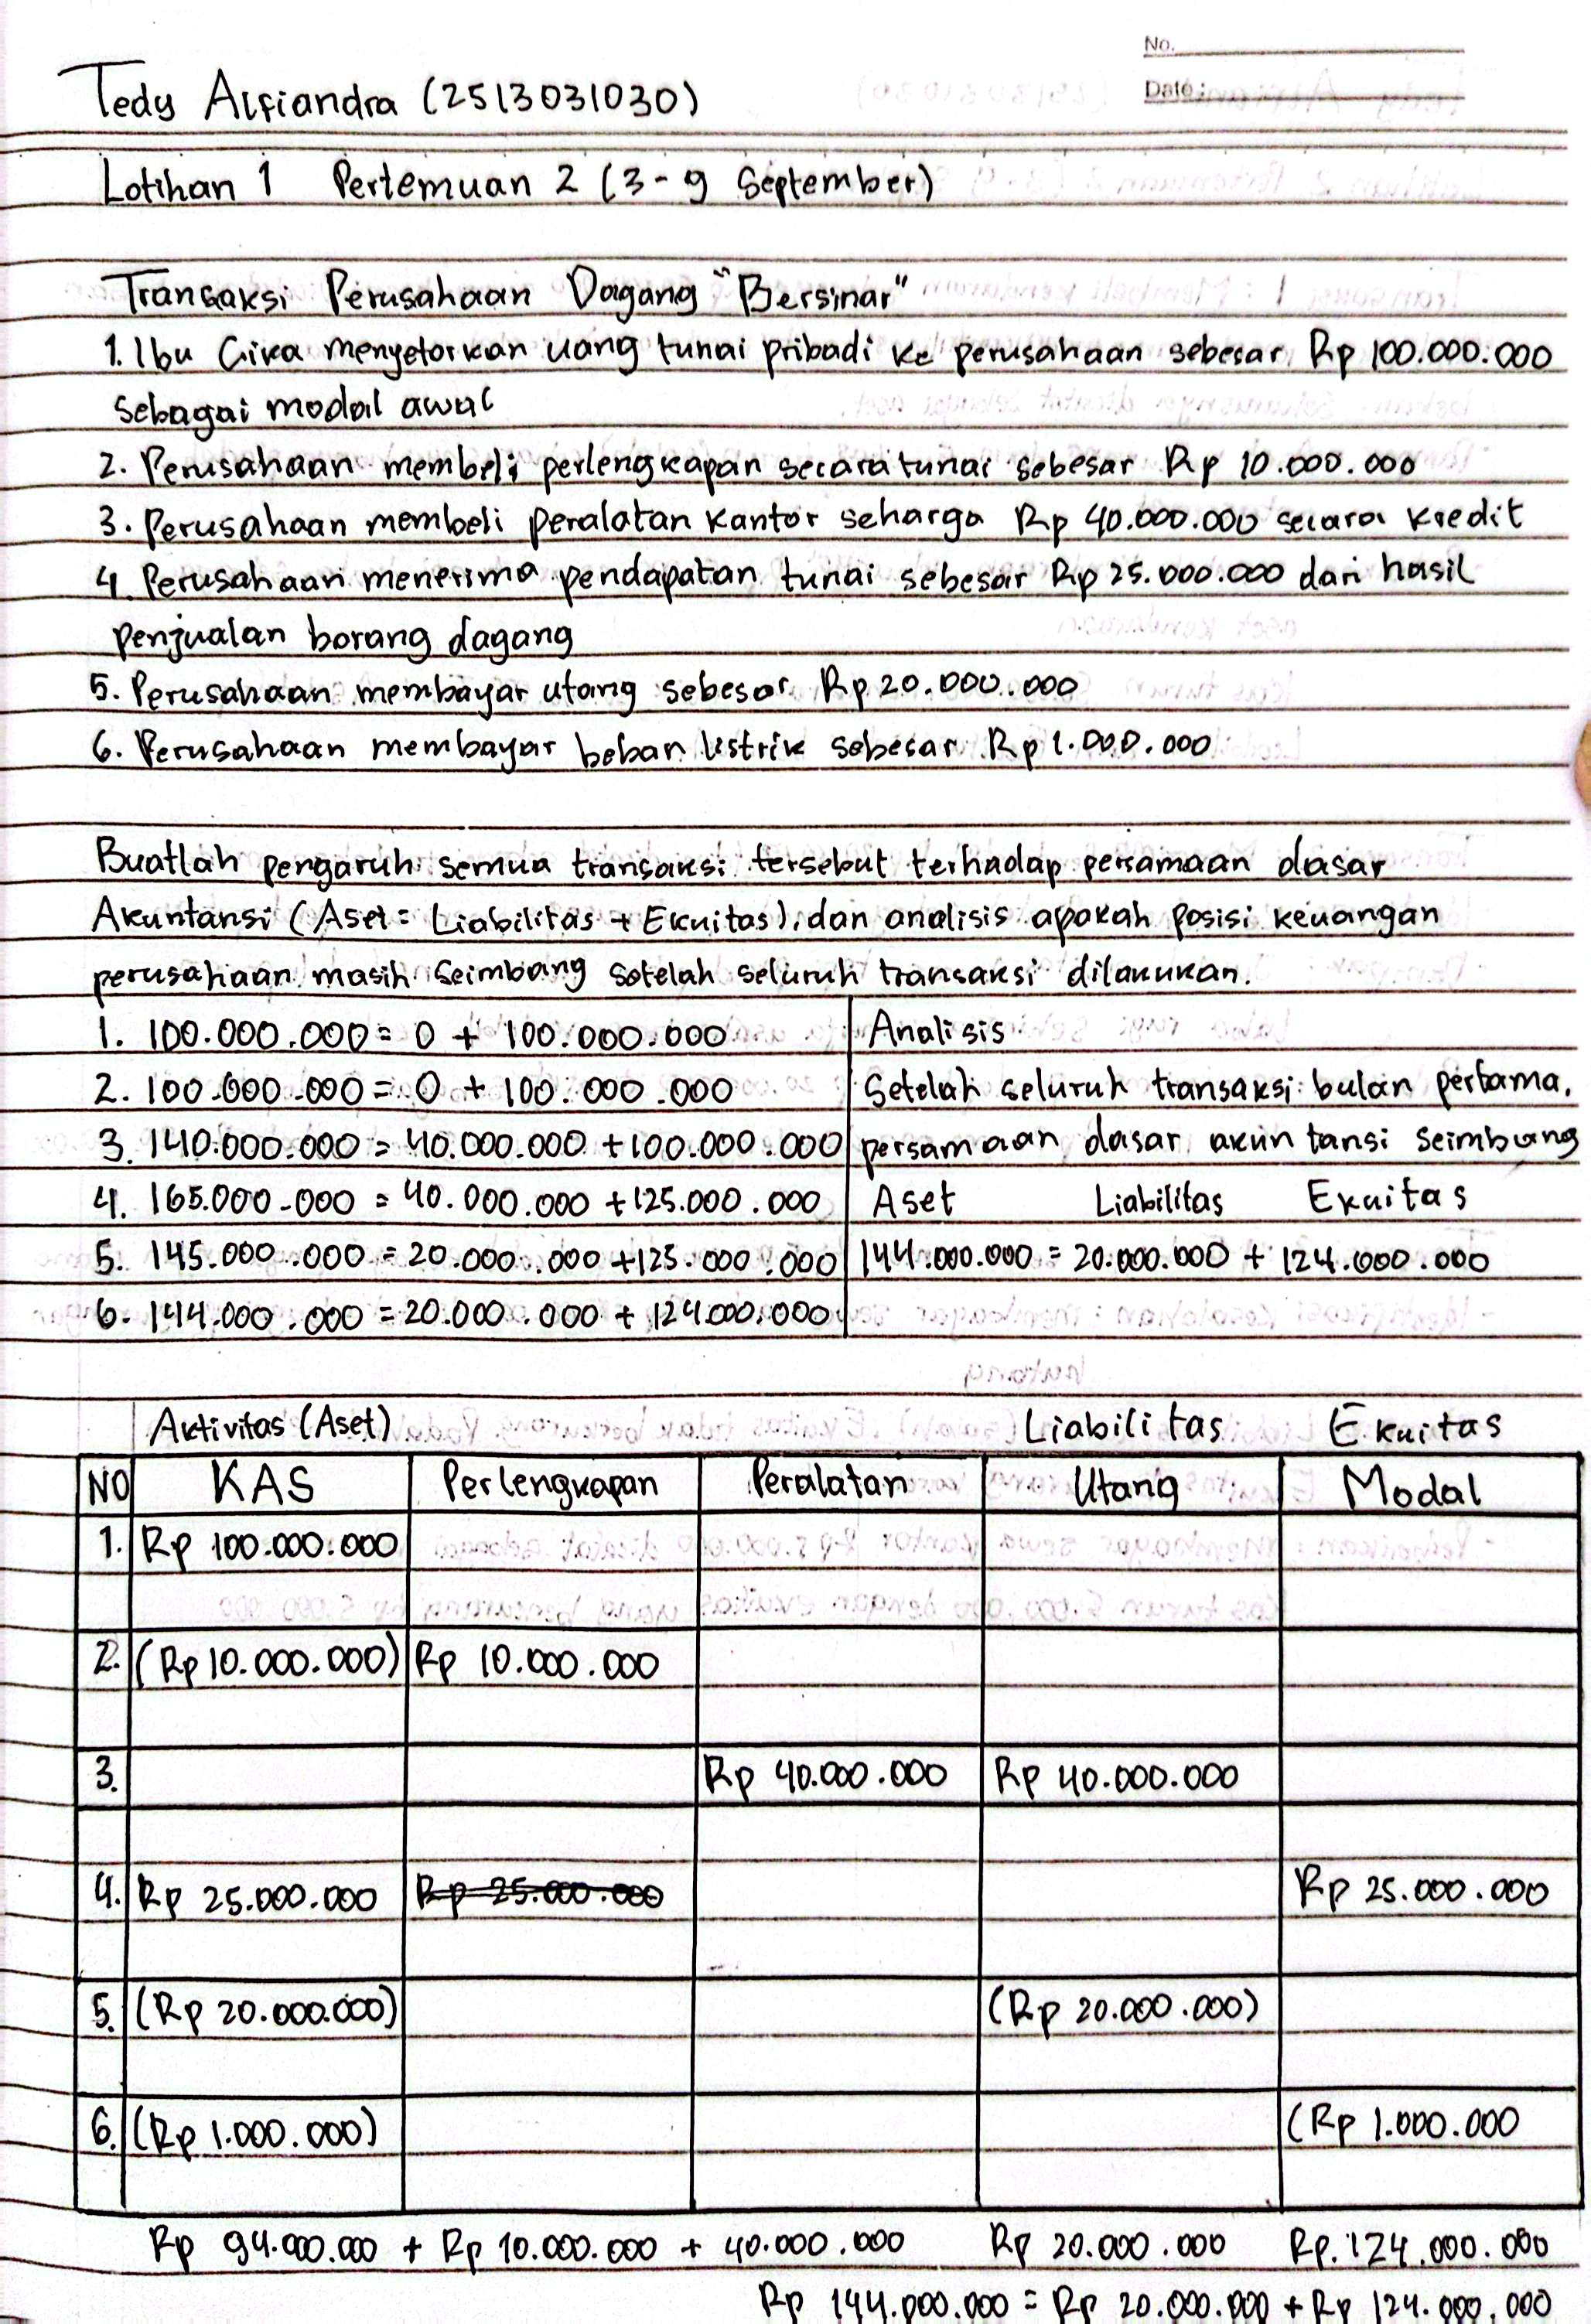 No.
Date:
Tedy Alfiandra (2513031030)
Lotihan 1 Pertemuan 2 (3-9 September)
Transaksi Perusahaan Dagang "Bersinar"
1. Ibu Gika menyetorkan uang tunai pribadi ke perusahaan sebesar Rp 100.000.000
sebagai modal awal
2. Perusahaan membeli perlengkapan secara tunai sebesar Rp 10.000.000
3. Perusahaan membeli peralatan kantor seharga Rp 40.000.000 secara kredit
4. Perusahaan menerima pendapatan tunai sebesar Rp 25.000.000 dari hasil
penjualan barang dagang
5. Perusahaan membayar utang sebesar Rp 20.000.000
6. Perusahaan membayar beban listrik sebesar Rp 1.000.000
Buatlah pengaruh semua transaksi tersebut terhadap persamaan dasar
Akuntansi (Aset = Liabilitas + Ekuitas), dan analisis apakah posisi keuangan
perusahaan masih seimbang setelah seluruh transaksi dilakukan.
1. 100.000.000 = 0 + 100.000.000 Analisis
2. 100.000.000 = 0 + 100.000.000 Setelah seluruh transaksi bulan pertama,
3. 140.000.000 = 40.000.000 + 100.000.000 persamaan dasar akuntansi seimbang
4. 165.000.000 = 40.000.000 + 125.000.000 Aset Liabilitas Ekuitas
5. 145.000.000 = 20.000.000 + 125.000.000 144.000.000 = 20.000.000 + 124.000.000
6. 144.000.000 = 20.000.000 + 124.000.000
Aktivitas (Aset) Liabilitas Ekuitas
NO KAS Perlengkapan Peralatan Utang Modal
1. Rp 100.000.000
2. (Rp 10.000.000) Rp 10.000.000
3. Rp 40.000.000 Rp 40.000.000
4. Rp 25.000.000 Rp 25.000.000 Rp 25.000.000
5. (Rp 20.000.000) (Rp 20.000.000)
6. (Rp 1.000.000) (Rp 1.000.000
Rp 94.000.000 + Rp 10.000.000 + 40.000.000 Rp 20.000.000 Rp. 124.000.000
Rp 144.000.000 = Rp 20.000.000 + Rp 124.000.000